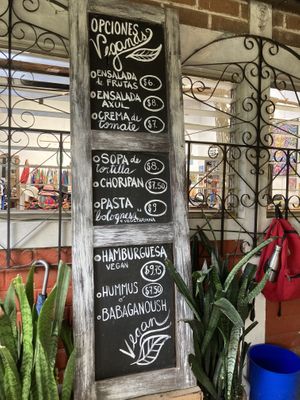 OPCIONES
Veganas
ENSALADA
de
FRUTAS $6
ENSALADA
AXUL $8
CREMA de
tomate $7
SOPA de
tortilla $8
CHORIPAN $7.50
PASTA $9
bolognesa
o VEGETARIANA
HAMBURGUESA
VEGAN $9.75
HUMMUS $7.50
o'
BABAGANOUSH
vegan